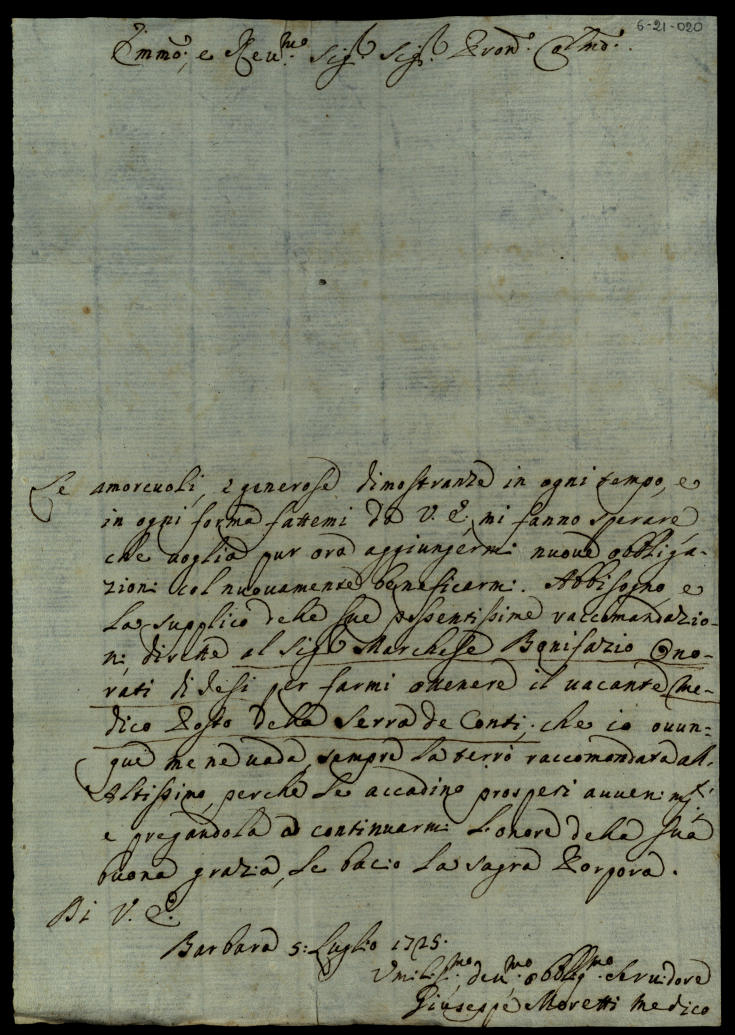 6-21-020
Emmo: e Reu:mo Sig:r Sig:r Pron: Colmo:
Le amoreuoli, e generose dimostranze in ogni tempo, e
in ogni forma fattemi da V. E, mi fanno sperare,
che uoglia pur ora aggiungermi nuoue obbliga-
zioni col nuouamente beneficarmi. Abbisogno, e
La supplico delle sue possentissime raccomandazio-
ni, dirette al Sig:r Marchese Bonifazio Ono-
rati di Jesi per farmi ottenere il uacante Me-
dico Posto della Serra de Conti, che io ouun-
que me ne uada, sempre La terrò raccomandata all'
Altissimo, perche Le accadino prosperi auuenimti;
e pregandola a continuarmi L'onore della Sua
buona grazia, Le bacio La sagra Porpora.
Di V. E.
Barbara 5: Luglio 1725.
Vmilis:mo deu:mo obblig:mo Seruidore
Giuseppe Moretti Medico